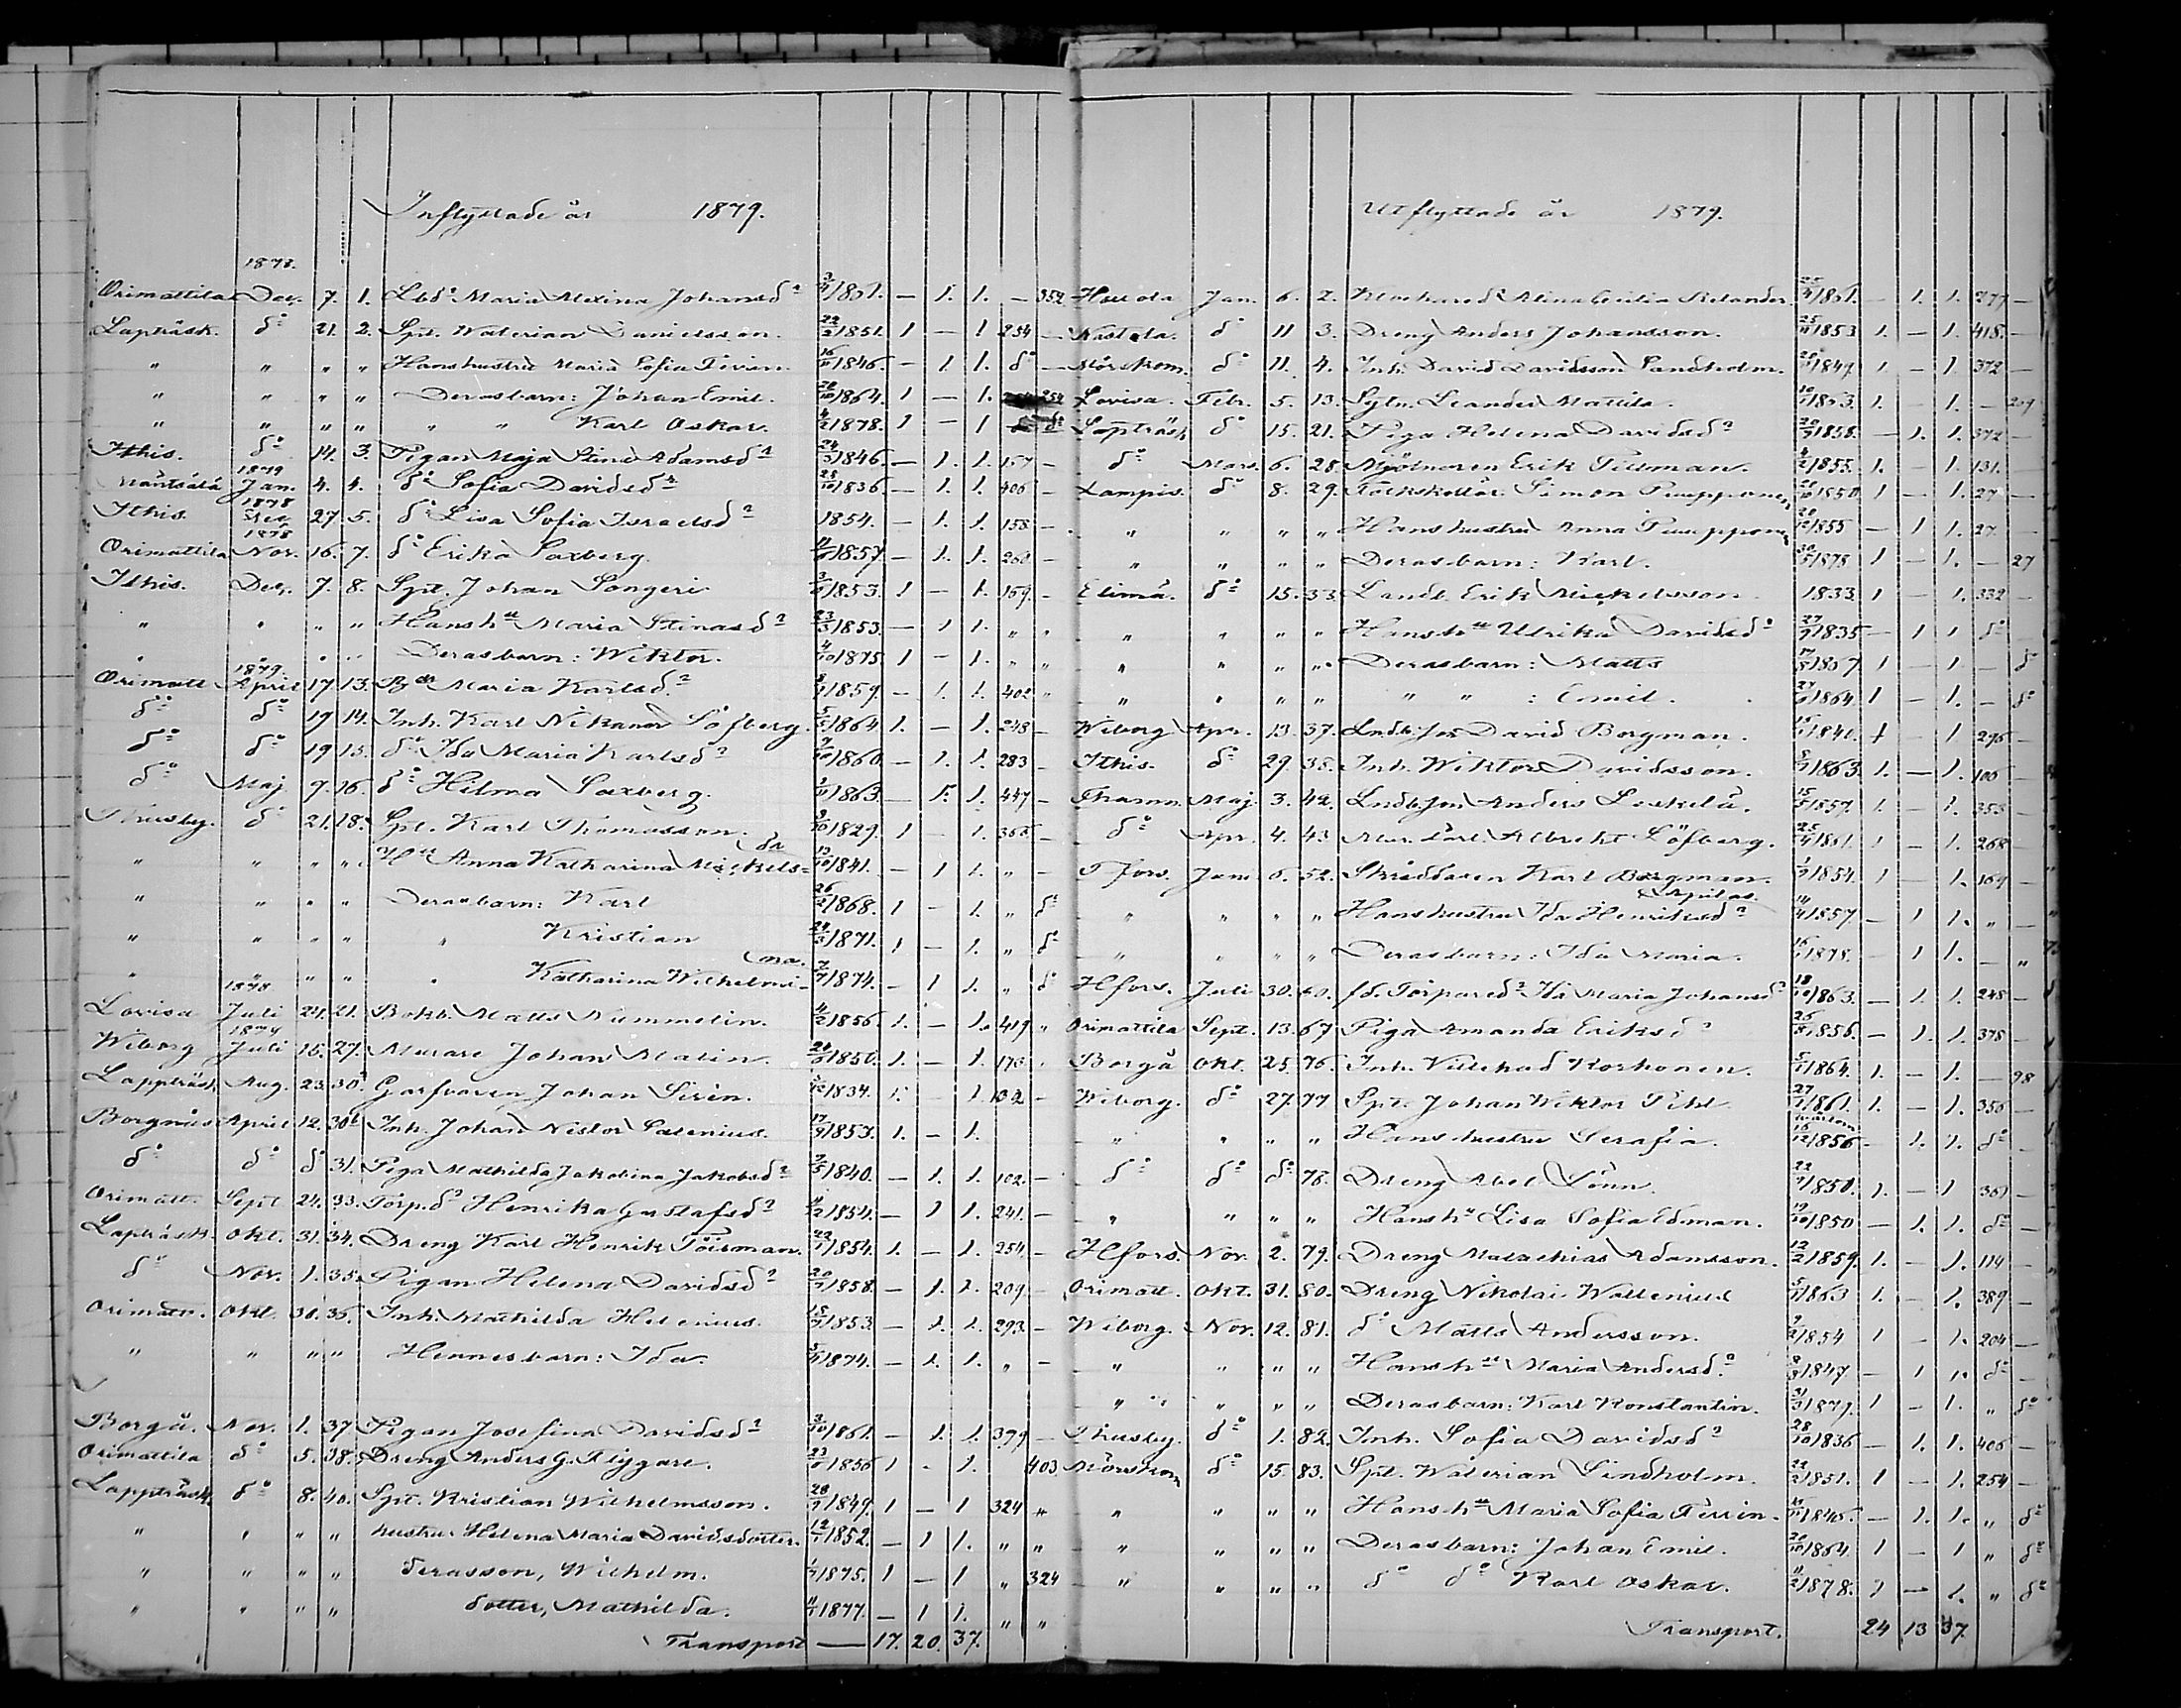 Inflyttade år 1879.
1878.
Orimattila Dec. 7. 1. Lbdr Maria Alexina Johansdr 1861. — 1. 1. — 352
Lapträsk. do 21. 2. Spt. Walerian Danielsson. 22/2 1851. 1 — 1 254 —
" " " " Hans hustru Maria Sofia 16/ 1846. — 1 1. do —
" " " " Deras barn: Johan Emil. 20/10 1864. 1 — 1. 254
" " " " " " Karl Oskar. 4/2 1878. 1 — 1 do
Ithis. do 14. 3. Pigan Maja Stina Adamsdr 24/3 1846. — 1. 1. 157 —
1879
Mäntsälä Jan. 4. 4. do Sofia Davidsdr 28/10 1836. — 1. 1. 406 —
1878
Ithis. Dec. 27. 5. do Lisa Sofia Israelsdr 1854. — 1. 1. 158 —
1878
Orimattila Nov. 16. 7. do Erika Saxberg. 1857. — 1. 1. 260 —
Ithis. Dec. 7. 8. Spt. Johan Songeri 1853. 1 — 1. 159. —
" " " " Hans hu Maria Stinasdr 23/3 1853. — 1 1. " "
" " " " Deras barn: Wiktor. 4/10 1875. 1 — 1. " "
1879.
Orimatt April 17. 13. Maria Karlsdr 1859. — 1. 1. 402 "
do do 19 14. Inh. Karl Nikanor Löfberg. 5/5 1864 1. — 1. 248 —
do do 19 15. do Ida Maria Karlsdr 1860. — 1. 1. 283 —
do Maj 9. 16. do Hilma Saxberg. 1863. — 1. 1. 447 —
Thusby. do 21. 18. Spt. Karl Thomasson. 9/10 1829. 1 — 1. 368 —
" " " " Hu Anna Katharina Mickels= dr 13/10 1841. — 1 1. " —
" " " " Deras barn: Karl 26/2 1868. 1 — 1. " do
" " " " " Kristian 24/3 1871. 1 — 1. " do
" " " " " Katharina Wilhelmi- na. 7/7 1874. — 1 1. " do
1878
Lovisa Juli 24. 21. Bokb. Matts Nummelin. 4/2 1856. 1. — 1. 419 "
1879
Wiborg Juli 15. 27. Murare Johan Malin. 1850. 1. — 1. 173
Lappträsk Aug. 23. 30. Garfvaren Johan Sirén. 1834. 1. — 1. 132 —
Borgnäs April 12. 30b Inh. Johan Nestor Salenius. 17/9 1853. 1. — 1.
do do do 31. Piga Mathilda Jakobina Jakobsdr 7/5 1840. — 1. 1. 102. —
Orimatt. Sept 24. 33. Torp.dr Henrika Gustafsdr 1854. — 1 1. 241. —
Lapträsk. Okt. 31. 34. Dreng Karl Henrik 22/1 1854. 1. — 1. 254. —
do Nov. 1. 35. Pigan Helena Davidsdr 20/7 1858. — 1. 1. 209 —
Orimatt. Okt. 30. 36. Inh. Mathilda Helenius. 18/7 1853. — 1. 1. 293. —
" " " " Hennes barn: Ida. 1874. — 1. 1. " —
Borgå. Nov. 1. 37 Pigan Josefina Davidsdr 3/10 1861. — 1. 1. 399 —
Orimattila do 5. 38. Dreng Anders G. Flygare. 1856 1 - 1. 403.
Lappträsk. do 8. 40. Spt. Kristian Wilhelmsson. 28/7 1849. 1 — 1 324 "
" " " " hustru Helena Maria Davidsdotter. 12/1 1852. — 1 1. " "
" " " " deras son, Wilhelm. 1875. 1 — 1 " 324
" " " " dotter, Mathilda. 1877. — 1 1. " "
Transport — 17. 20. 37.
Utflyttade år 1879.
Hollola Jan. 6. 2. Alina Cecilia Selander. 25/4 1861. — 1. 1. 277 —
Nastola. do 11 3. Dreng Anders Johansson. 25/11 1853 1. — 1. 418. —
Mörskom. do 11. 4. Inh. David Davidsson Sandholm. 1849 1 — 1 372 —
Lovisa. Febr. 5. 13. Leander Mattila. 1853. 1. — 1. — 209
Lapträsk do 15. 21. Piga Helena Davidsdr 20/7 1858. — 1. 1. 372 —
do Mars. 6. 28. Mjölnaren Erik Tillman. 4/2 1855. 1. — 1. 131. —
Lampis. do 8. 29. Simon Puupponen 1850. 1 — 1. 27 —
" " " " Hans hustru Anna Puupponen 20/12 1855 — 1 1. 27. —
" " " " Deras barn: Karl. 30/5 1878. 1 — 1. — 27
Elimä. do 15. 33. Landb. Erik Mickelsson. 1833. 1 — 1. 332 —
" " " " Hans hu Ulrika Davidsdr 27/9 1835 — 1 1 do —
" " " " Deras barn: Matts 1857 1 — 1 — do
" " " " " " : Emil. 1864. 1 — 1. — do
Wiborg Apr. 13. 37. David Borgman. 1840. 1 — 1 296 —
Ithis. do 29. 38. Inh. Wiktor Davidsson. 1863. 1. — 1. 106 —
Thamm. Maj. 3. 42. Anders Leskelä. 15/5 1857. 1. — 1. 353 —
do Apr. 4. 43 Albrekt Löfberg. 25/4 1861. 1 — 1. 268 —
Tfors. Juni 6. 52. Skräddaren Karl Bergman. 1854. 1 — 1. 169 —
" " " " Hans hustru Ida Henriksdr 1857. — 1 1. " —
" " " " Deras barn: Ida Maria. 1878. — 1 1. — "
Hfors. Juli 30. 60. fd. Torparedr Ida Maria Johansdr 18/10 1863. — 1. 1. 248 —
Orimattila Sept. 13. 67 Piga Amanda Eriksdr 26/8 1856. — 1. 1. 378 —
Borgå Okt. 25. 76. Inh. Villehad Korhonen. 1864. 1. — 1. — 98
Wiborg. do 27. 77. Spt. Johan Wiktor Pihl. 27/1 1861. 1. — 1. 356 —
" " " " Hans hustru Serafia. 16/12 1856 — 1. 1. do —
do do do 78. Dreng Abel Lönn. 22/7 1850. 1. — 1 361 —
" " " " Hans hu Lisa Sofia Edman. 19/10 1850 — 1. 1. do —
Hfors. Nov. 2. 79. Dreng Malachias Adamsson. 12/2 1859. 1. — 1. 114 —
Orimatt. Okt. 31. 80. Dreng Nikolai Wallenius 1863 1. — 1. 389 —
Wiborg. Nov. 12. 81. do Matts Andersson. 1854 1 — 1. 204 —
" " " " Hans hu Maria Andersdr. 1847 — 1 1. do —
" " " " Deras barn: Karl Konstantin. 31/3 1879. 1 — 1. " do
Thusby. do 1. 82. Inh. Sofia Davidsdr 28/10 1836 — 1. 1. 406 —
Mörskom do 15. 83. Spt. Walerian Lindholm. 22/2 1851. 1 — 1. 254 —
" " " " Hans hu Maria Sofia 1846. — 1. 1. " do
" " " " Deras barn: Johan Emil. 20/10 1864. 1 — 1 " do
" " " " do do Karl Oskar. 1878. 1 — 1. " do
Transport. 24 13 37.